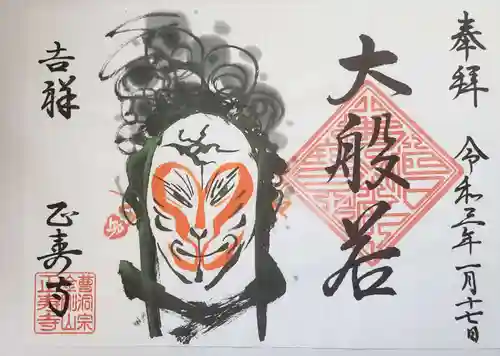 奉拝
令和三年一月十七日
大般若
吉祥
正寿寺
曹洞宗